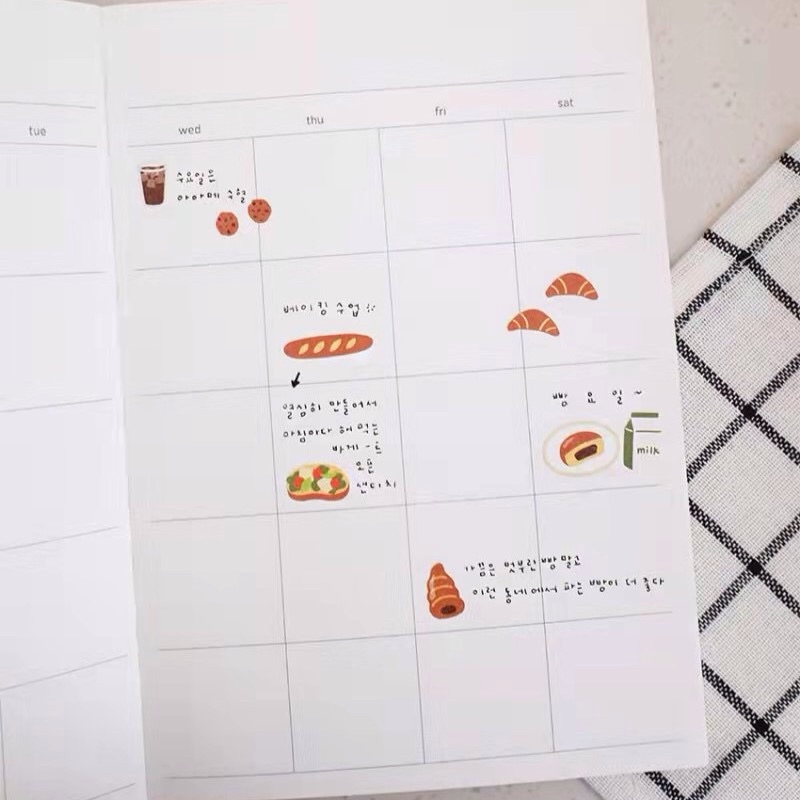 tue
wed
thu
fri
sat
수요일은
아아메 수혈
베이킹 수업
열심히 만들어서
아침마다 해 먹는
바게-트
오픈
샌디치
빵 요 일 ~
milk
가끔은 멋부린 빵 말고
이런 동네에서 파는 빵이 더 좋다